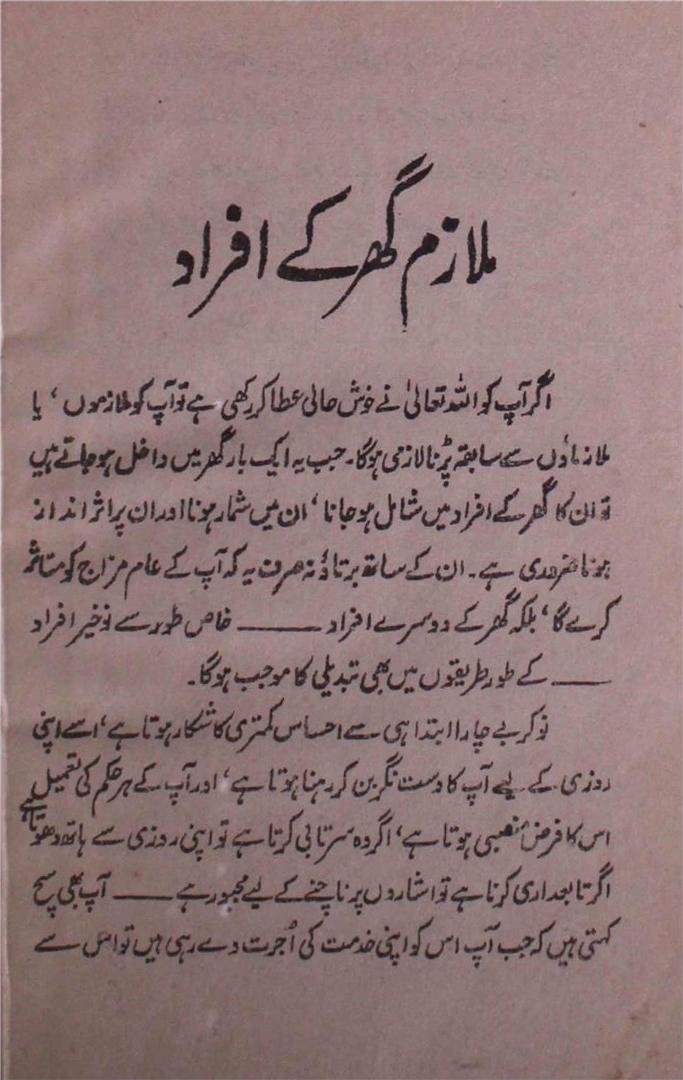 ملازم گھر کے افراد
اگر آپ کو اللہ تعالیٰ نے خوش حالی عطا کر رکھی ہے تو آپ کو ملازموں ‘ یا
ملازماؤں سے سابقہ پڑنا لازمی ہوگا۔ جب یہ ایک بار گھر میں داخل ہو جاتے ہیں
تو ان کا گھر کے افراد میں شامل ہو جانا ‘ ان میں شمار ہونا اور ان پر اثر انداز
ہونا ضروری ہے۔ ان کے ساتھ برتاؤ نہ صرف یہ کہ آپ کے عام مزاج کو متاثر
کرے گا ‘ بلکہ گھر کے دوسرے افراد ــــــ خاص طور سے نوخیز افراد
ــــــ کے طور طریقوں میں بھی تبدیلی کا موجب ہوگا۔
نوکر بے چارا ابتدا ہی سے احساس کمتری کا شکار ہوتا ہے ‘ اسے اپنی
روزی کے لیے آپ کا دست نگر بن کر رہنا ہوتا ہے ‘ اور آپ کے ہر حکم کی تعمیل
اس کا فرض منصبی ہوتا ہے ‘ اگر وہ سرتابی کرتا ہے تو اپنی روزی سے ہاتھ دھوتا ہے
اگر تابعداری کرتا ہے تو اشاروں پر ناچنے کے لیے مجبور ہے ــــــ آپ بھی سچ
کہتی ہیں کہ جب آپ اس کو اپنی خدمت کی اُجرت دے رہی ہیں تو اس سے